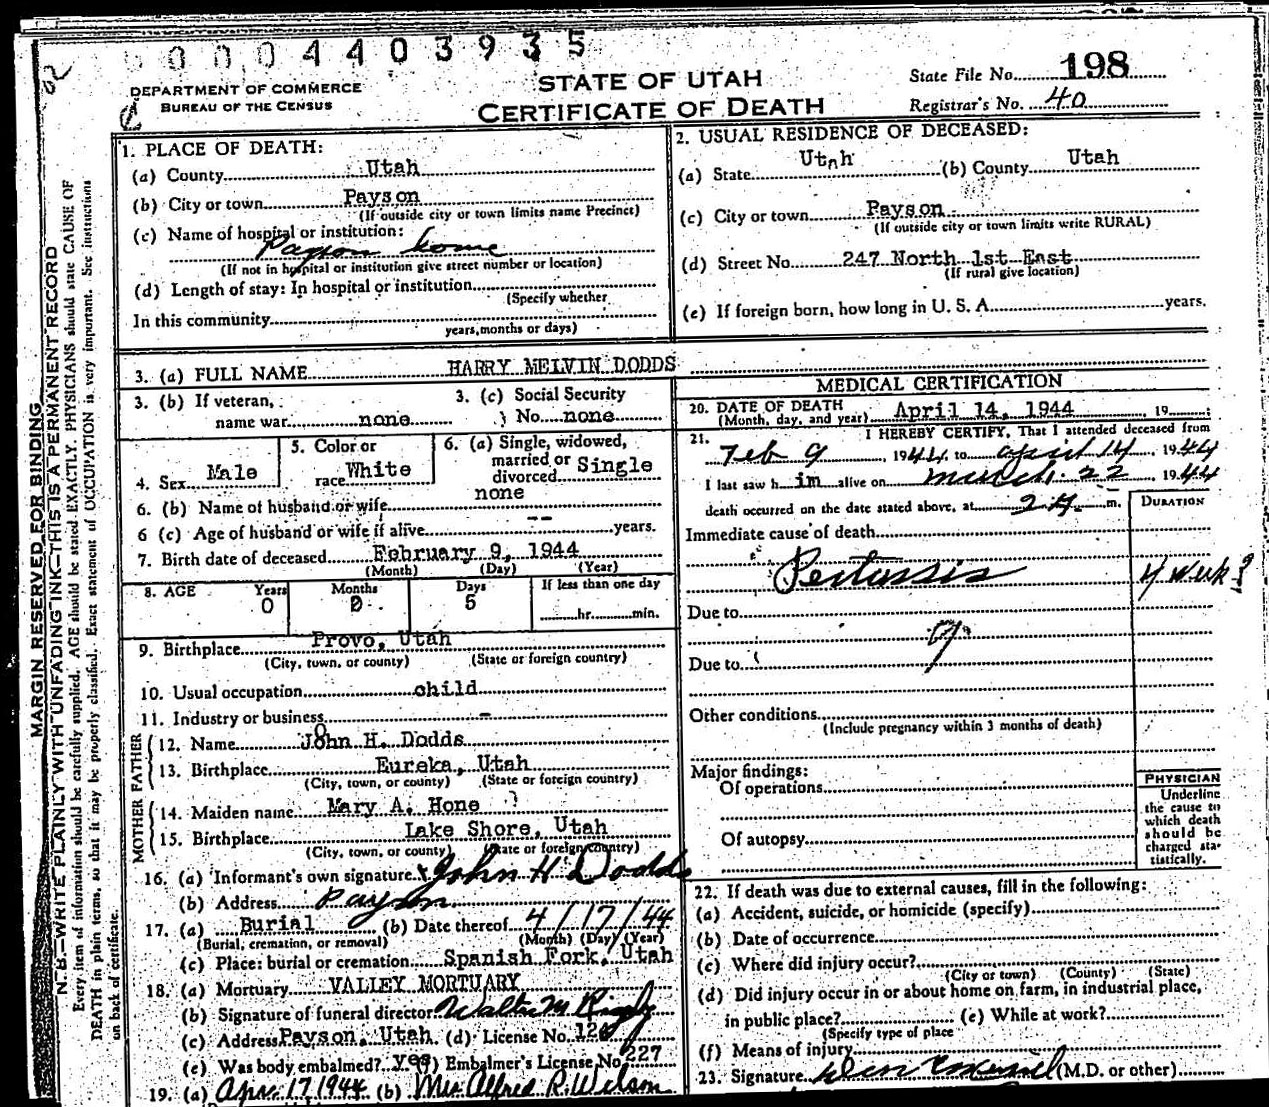 0004403935
DEPARTMENT OF COMMERCE
BUREAU OF THE CENSUS
STATE OF UTAH
CERTIFICATE OF DEATH
State File No. 198
Registrar's No. 40
MARGIN RESERVED FOR BINDING
N. B.—WRITE PLAINLY WITH UNFADING INK—THIS IS A PERMANENT RECORD
Every item of information should be carefully supplied. AGE should be stated EXACTLY. PHYSICIANS should state CAUSE OF
DEATH in plain terms, so that it may be properly classified. Exact statement of OCCUPATION is very important. See instructions
on back of certificate.
1. PLACE OF DEATH:
(a) County Utah
(b) City or town Payson
(If outside city or town limits name Precinct)
(c) Name of hospital or institution:
Payson home
(If not in hospital or institution give street number or location)
(d) Length of stay: In hospital or institution
(Specify whether
In this community
years, months or days)
2. USUAL RESIDENCE OF DECEASED:
(a) State Utah (b) County Utah
(c) City or town Payson
(If outside city or town limits write RURAL)
(d) Street No. 247 North 1st East
(If rural give location)
(e) If foreign born, how long in U. S. A. years.
3. (a) FULL NAME HARRY MELVIN DODDS
3. (b) If veteran, name war none
3. (c) Social Security No. none
4. Sex Male
5. Color or race White
6. (a) Single, widowed, married or divorced Single
6. (b) Name of husband or wife none
6 (c) Age of husband or wife if alive -- years.
7. Birth date of deceased February 9, 1944
(Month) (Day) (Year)
8. AGE Years Months Days If less than one day
0 5 hr. min.
9. Birthplace Provo, Utah
(City, town, or county) (State or foreign country)
10. Usual occupation child
11. Industry or business -
FATHER
12. Name John H. Dodds
13. Birthplace Eureka, Utah
(City, town, or county) (State or foreign country)
MOTHER
14. Maiden name Mary A. Hone
15. Birthplace Lake Shore, Utah
(City, town, or county) (State or foreign country)
16. (a) Informant's own signature John H Dodds
(b) Address Payson
17. (a) Burial (b) Date thereof 4/17/44
(Burial, cremation, or removal) (Month) (Day) (Year)
(c) Place: burial or cremation Spanish Fork, Utah
18. (a) Mortuary VALLEY MORTUARY
(b) Signature of funeral director Walter M Rigby
(c) Address Payson, Utah (d) License No.
(e) Was body embalmed? yes Embalmer's License No. 227
19. (a) Apr. 17, 1944 (b) Mrs Alfred R. Wilson
MEDICAL CERTIFICATION
20. DATE OF DEATH
(Month, day, and year) April 14, 1944, 19
21. I HEREBY CERTIFY, That I attended deceased from
Feb 9 1944 to april 14, 1944
I last saw him alive on march 22 1944
death occurred on the date stated above, at m.
DURATION
Immediate cause of death
Pertussis 4 weeks
Due to
Due to
Other conditions
(Include pregnancy within 3 months of death)
Major findings:
Of operations
Of autopsy
PHYSICIAN
Underline
the cause to
which death
should be
charged sta-
tistically.
22. If death was due to external causes, fill in the following:
(a) Accident, suicide, or homicide (specify)
(b) Date of occurrence
(c) Where did injury occur?
(City or town) (County) (State)
(d) Did injury occur in or about home on farm, in industrial place,
in public place? (e) While at work?
(Specify type of place
(f) Means of injury
23. Signature (M.D. or other)